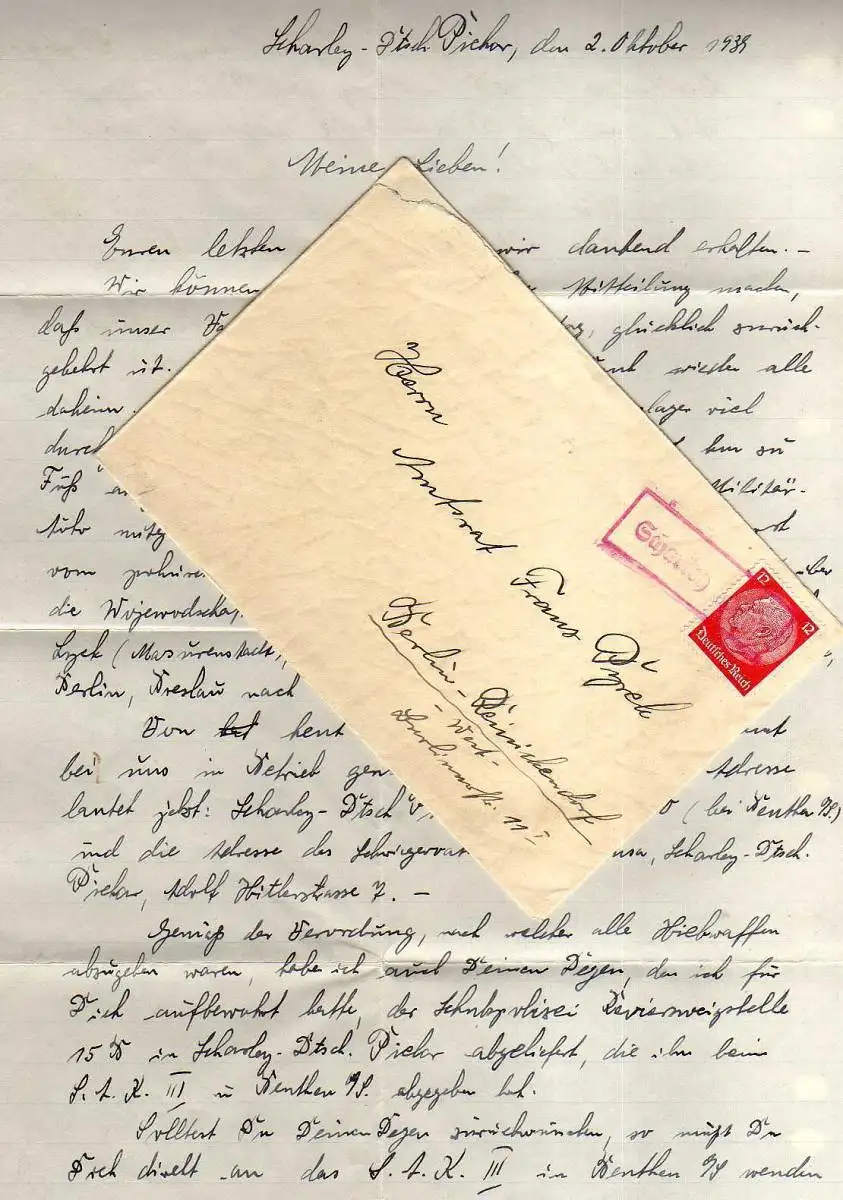 Scharley-Dtsch Piekar, den 2. Oktober 1939
Meine Lieben!
Euren letzten wir dankend erhalten. –
Wir können Mitteilung machen,
daß unser glücklich zurück-
gekehrt ist. wieder alle
daheim. lager viel
durch km zu
Fuß Militär-
Auto
vom über
die Wojewodschaf
Lyck (Masurenstadt,
Berlin, Breslau nach
Von heut
bei uns in Betrieb gen Adresse
lautet jetzt: Scharley-Dtsch (bei Beuthen O/S.)
und die Adresse des Schwiegervat Scharley-Dtsch.
Piekar, Adolf Hitlerstrasse 7. –
Gemäß der Verordung, nach welcher alle Hiebwaffen
abzugeben waren, habe ich auch Deinen Degen, den ich für
Dich aufbewahrt hatte, der Schutzpolizei Revierzweigstelle
15 B in Scharley-Dtsch. Piekar abgeliefert, die ihn beim
S. A. K. III in Beuthen O/S. abgegeben hat.
Solltest Du Deinen Degen zurückwünschen, so mußt Du
Dich direkt an das S. A. K. III in Beuthen O/S wenden
Herrn
Amtsrat Franz Dyrek
Berlin-Reinickendorf
-West-
Berlinerstr. 11 I
Scharley
12
12
Deutsches Reich